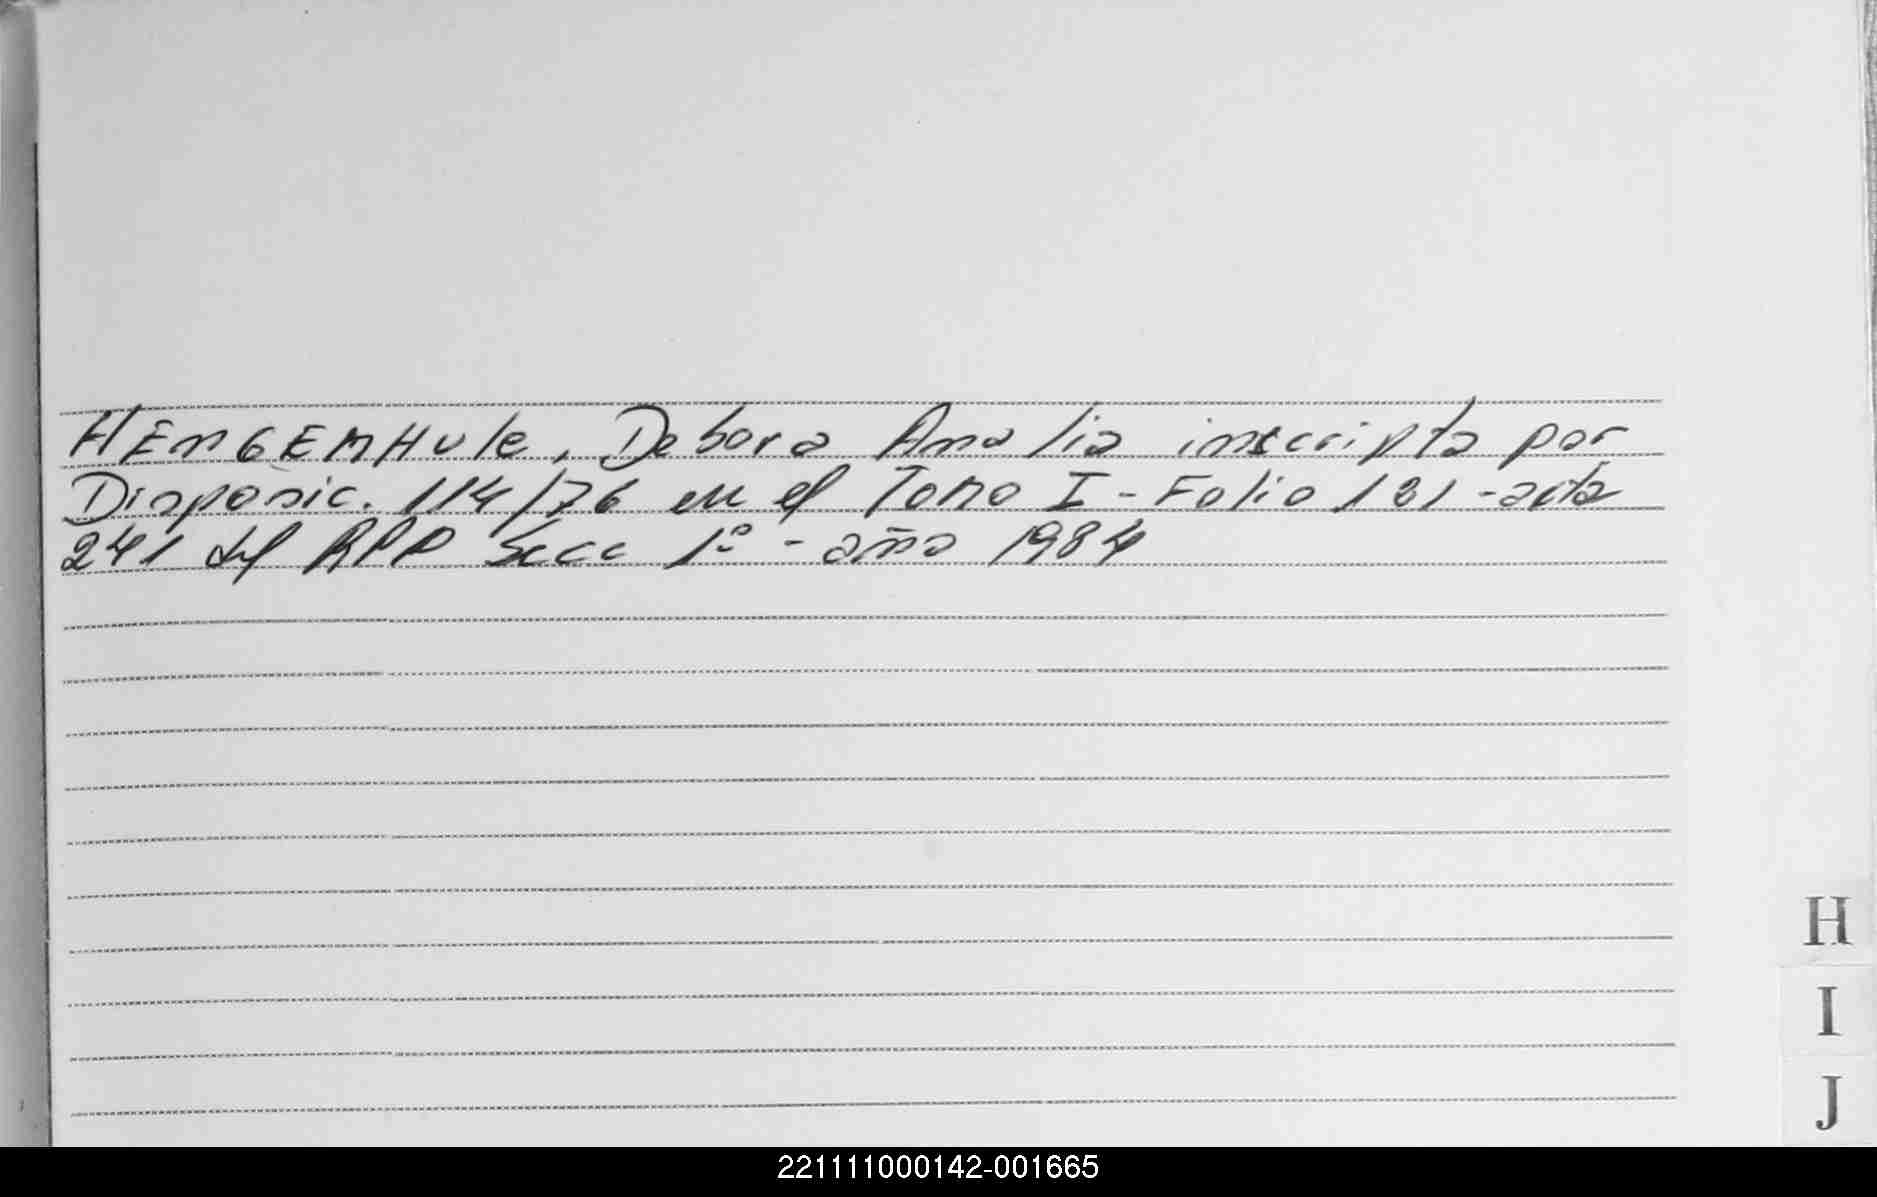 HEnGEMHule, Debora Analia inscripta por
Disposic. 114/76 en el Tomo I - Folio 121 - acta
241 del RPP Secc 1º - año 1984
H
I
J
221111000142-001665